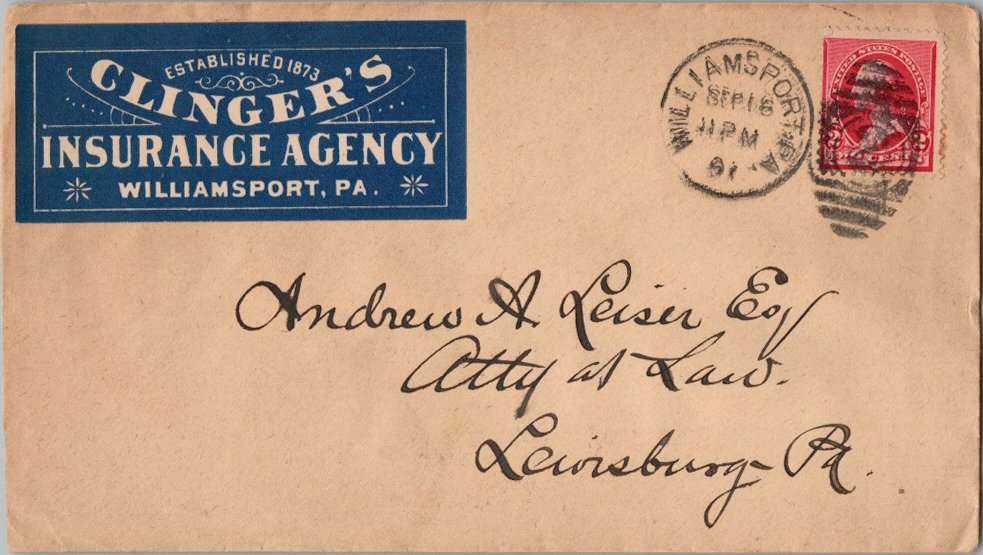 ESTABLISHED 1873
CLINGER'S
INSURANCE AGENCY
WILLIAMSPORT, PA.
WILLIAMSPORT, PA.
SEP 16
11 PM
91
UNITED STATES POSTAGE
2 CENTS 2
Andrew A. Leiser Esq
Atty at Law.
Lewisburg Pa.